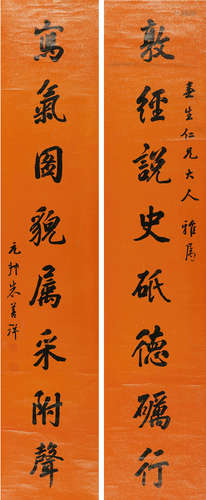 敦經說史砥德礪行
生仁兄大人 雅属
寫氣圖貌属采附聲
朱善祥